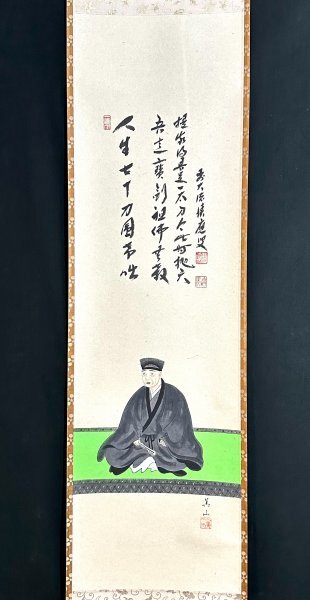 人生七十力圍希咄
吾這寶剣祖佛共殺
提我得具足一太刀今此時抛天
前大徳積應叟
美山